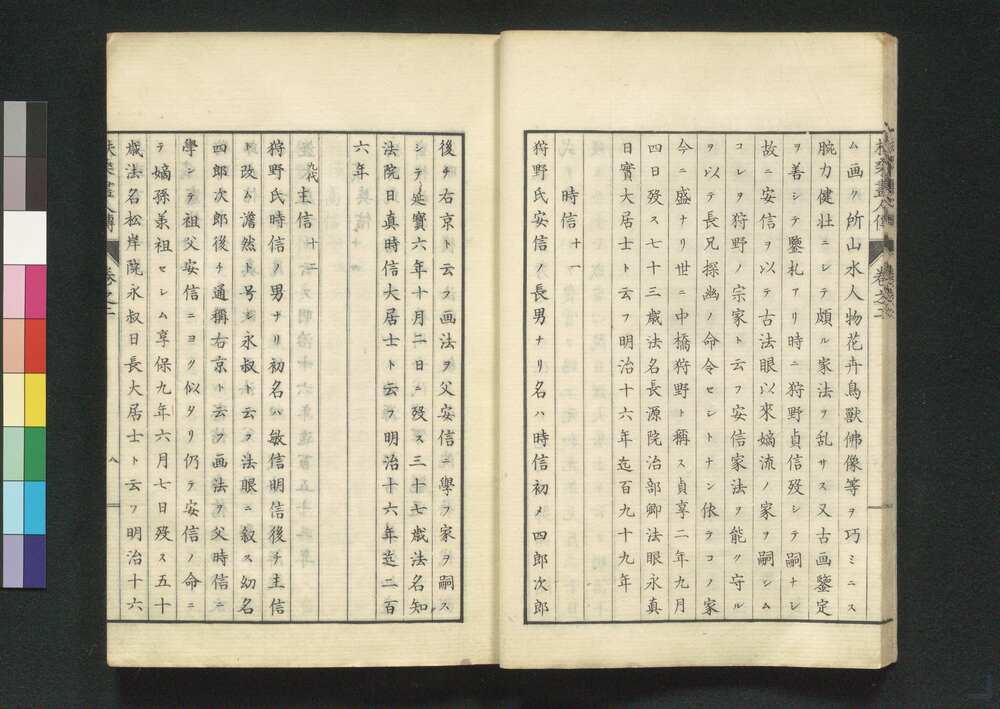 ム画ク所山水人物花卉鳥獸佛像等ヲ巧ミニス
腕力健壮ニシテ頗ル家法ヲ乱サス又古画鑒定
ヲ善シテ鑒札アリ時ニ狩野貞信歿シテ嗣ナシ
故ニ安信ヲ以テ古法眼以來嫡流ノ家ヲ嗣シム
コレヲ狩野ノ宗家ト云フ安信家法ヲ能ク守ル
ヲ以テ長兄探幽ノ命令セシトナン依テコノ家
今ニ盛ナリ世ニ中橋狩野ト稱ス貞享二年九月
四日歿ス七十三歳法名長源院治部卿法眼永真
日實大居士ト云フ明治十六年迄百九十九年
時信 十一
狩野氏安信ノ長男ナリ名ハ時信初メ四郎次郎
後チ右京ト云フ画法ヲ父安信ニ學フ家ヲ嗣ス
シテ延寳六年十月二日ニ歿ス三十七歳法名知
法院日真時信大居士ト云フ明治十六年迄二百
六年
九代 主信 十二
狩野氏時信ノ男ナリ初名ハ敏信明信後チ主信
ト改ム澹然ト号シ永叔ト云フ法眼ニ叙ス幼名
四郎次郎後チ通稱右京ト云フ画法ヲ父時信ニ
學シテ祖父安信ニヨク似タリ仍テ安信ノ命ニ
テ嫡孫義祖セシム享保九年六月七日歿ス五十
歳法名松岸院永叔日長大居士ト云フ明治十六
卷之二
八